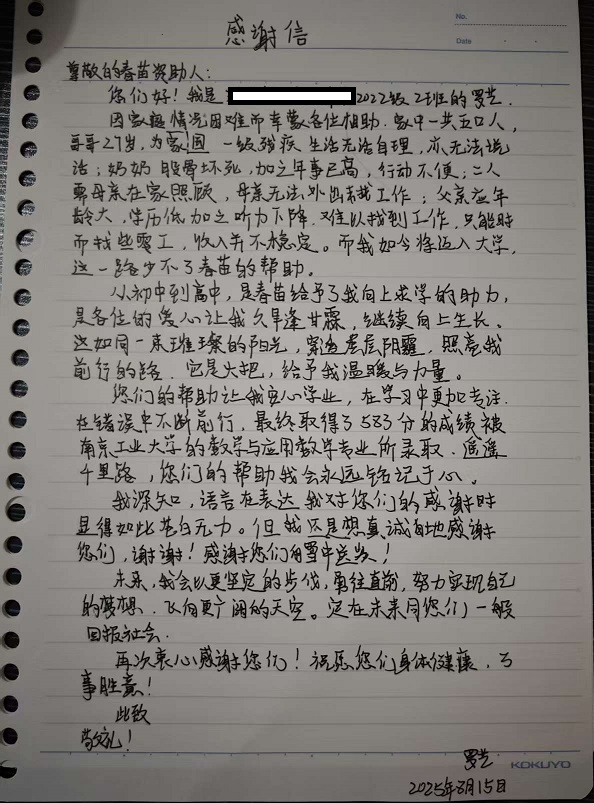 感谢信
No.
Date
尊敬的春苗资助人：
您们好！我是 2022级2班的罗芝.
因家庭情况困难而幸蒙各位相助.家中一共五口人,
哥哥27岁,为家国一级残疾 生活无法自理,亦无法说
话；奶奶股骨坏死,加之年事已高,行动不便；二人
要母亲在家照顾,母亲无法外出找工作；父亲应年
龄大,学历低加之听力下降.难以找到工作,只能时
而找些零工,收入并不稳定。而我如今将迈入大学,
这一路少不了春苗的帮助。
从初中到高中,是春苗给予了我向上求学的助力,
是各位的爱心让我久旱逢甘霖,继续向上生长。
这如同一束璀璨的阳光,穿透层层阴霾,照亮我
前行的路.它是火把,给予我温暖与力量。
您们的帮助让我安心学业,在学习中更加专注.
在错误中不断前行,最终取得了583分的成绩被
南京工业大学的数学与应用数学专业所录取.遥遥
千里路,您们的帮助我会永远铭记于心。
我深知,语言在表达我对你们的感谢时
显得如此苍白无力。但我还是想真诚地感谢
您们,谢谢！感谢您们的雪中送炭！
未来,我会以更坚定的步伐,勇往直前,努力实现自己
的梦想.飞向更广阔的天空。定在未来同您们一般
回报社会.
再次衷心感谢您们！祝愿您们身体健康,万
事胜意！
此致
敬礼！
罗芝
KOKUYO
2025年8月15日